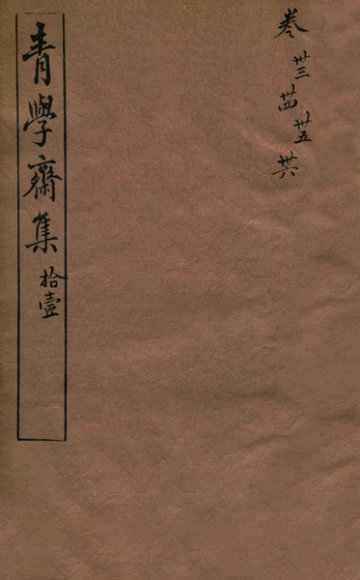 卷卅三卅四卅五卅六
青學齋集拾壹